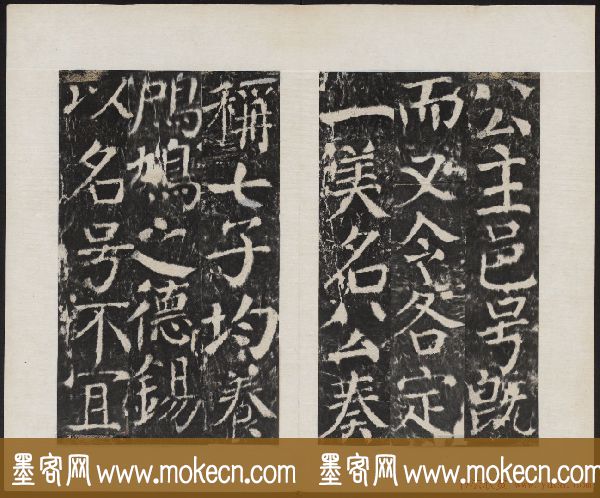 公主邑号既
而又令各定
一美名公奏
稱七子均養
鳲鳩之德錫
以名号不宜
墨客网 www.mokecn.com 墨客网 www.mokecn.com